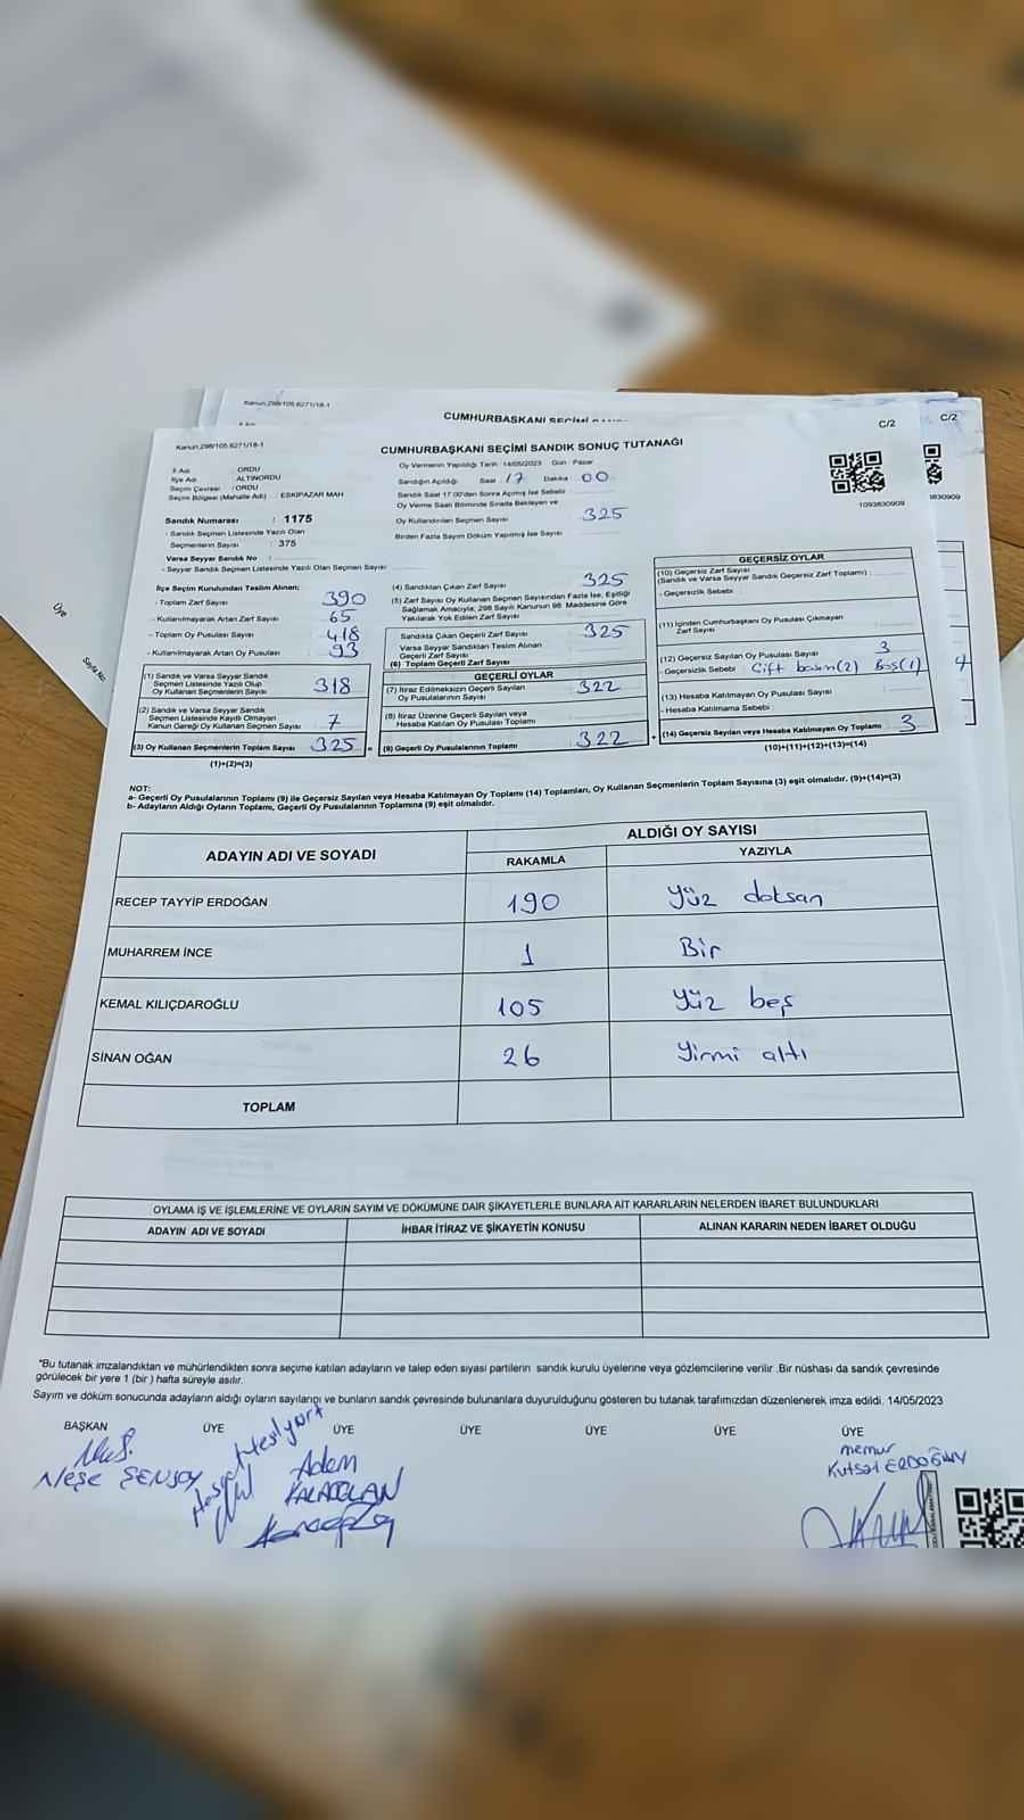 CUMHURBAŞKANI
C/2
Kanun:298/105 6271/18-1
CUMHURBAŞKANI SEÇİMİ SANDIK SONUÇ TUTANAĞI
C/2
İl Adı : ORDU
İlçe Adı : ALTINORDU
Seçim Çevresi : ORDU
Seçim Bölgesi (Mahalle Adı) : ESKİPAZAR MAH
Sandık Numarası : 1175
- Sandık Seçmen Listesinde Yazılı Olan
Seçmenlerin Sayısı : 375
Varsa Seyyar Sandık No :
- Seyyar Sandık Seçmen Listesinde Yazılı Olan Seçmen Sayısı
Oy Vermenin Yapıldığı Tarih : 14/05/2023 Gün : Pazar
Sandığın Açıldığı Saat : 17 Dakika : 00
Sandık Saat 17.00'den Sonra Açılmış İse Sebebi
Oy Verme Saati Bitiminde Sırada Bekleyen ve
Oy Kullandırılan Seçmen Sayısı 325
Birden Fazla Sayım Döküm Yapılmış İse Sayısı
1093830909
1830909
İlçe Seçim Kurulundan Teslim Alınan;
- Toplam Zarf Sayısı 390
- Kullanılmayarak Artan Zarf Sayısı 65
- Toplam Oy Pusulası Sayısı 418
- Kullanılmayarak Artan Oy Pusulası 93
(1) Sandık ve Varsa Seyyar Sandık
Seçmen Listesinde Yazılı Olup
Oy Kullanan Seçmenlerin Sayısı 318
(2) Sandık ve Varsa Seyyar Sandık
Seçmen Listesinde Kayıtlı Olmayan
Kanun Gereği Oy Kullanan Seçmen Sayısı 7
(3) Oy Kullanan Seçmenlerin Toplam Sayısı 325 =
(1)+(2)=(3)
(4) Sandıktan Çıkan Zarf Sayısı 325
(5) Zarf Sayısı Oy Kullanan Seçmen Sayısından Fazla İse, Eşitliği
Sağlamak Amacıyla; 298 Sayılı Kanunun 98. Maddesine Göre
Yakılarak Yok Edilen Zarf Sayısı
Sandıkta Çıkan Geçerli Zarf Sayısı 325
Varsa Seyyar Sandıktan Teslim Alınan
Geçerli Zarf Sayısı
(6) Toplam Geçerli Zarf Sayısı
GEÇERLİ OYLAR
(7) İtiraz Edilmeksizin Geçerli Sayılan
Oy Pusulalarının Sayısı 322
(8) İtiraz Üzerine Geçerli Sayılan veya
Hesaba Katılan Oy Pusulası Toplamı
(9) Geçerli Oy Pusulalarının Toplamı 322 +
GEÇERSİZ OYLAR
(10) Geçersiz Zarf Sayısı
(Sandık ve Varsa Seyyar Sandık Geçersiz Zarf Toplamı) :
- Geçersizlik Sebebi
(11) İçinden Cumhurbaşkanı Oy Pusulası Çıkmayan
Zarf Sayısı
(12) Geçersiz Sayılan Oy Pusulası Sayısı 3
- Geçersizlik Sebebi Çift basım(2) Boş(1)
(13) Hesaba Katılmayan Oy Pusulası Sayısı
- Hesaba Katılmama Sebebi
(14) Geçersiz Sayılan veya Hesaba Katılmayan Oy Toplamı 3
(10)+(11)+(12)+(13)=(14)
Üye
NOT:
a- Geçerli Oy Pusulalarının Toplamı (9) ile Geçersiz Sayılan veya Hesaba Katılmayan Oy Toplamı (14) Toplamları, Oy Kullanan Seçmenlerin Toplam Sayısına (3) eşit olmalıdır. (9)+(14)=(3)
b- Adayların Aldığı Oyların Toplamı, Geçerli Oy Pusulalarının Toplamına (9) eşit olmalıdır.
ADAYIN ADI VE SOYADI
ALDIĞI OY SAYISI
RAKAMLA YAZIYLA
RECEP TAYYİP ERDOĞAN 190 Yüz doksan
MUHARREM İNCE 1 Bir
KEMAL KILIÇDAROĞLU 105 Yüz beş
SİNAN OĞAN 26 Yirmi altı
TOPLAM
OYLAMA İŞ VE İŞLEMLERİNE VE OYLARIN SAYIM VE DÖKÜMÜNE DAİR ŞİKAYETLERLE BUNLARA AİT KARARLARIN NELERDEN İBARET BULUNDUKLARI
ADAYIN ADI VE SOYADI İHBAR İTİRAZ VE ŞİKAYETİN KONUSU ALINAN KARARIN NEDEN İBARET OLDUĞU
"Bu tutanak imzalandıktan ve mühürlendikten sonra seçime katılan adayların ve talep eden siyasi partilerin sandık kurulu üyelerine veya gözlemcilerine verilir .Bir nüshası da sandık çevresinde
görülecek bir yere 1 (bir ) hafta süreyle asılır.
Sayım ve döküm sonucunda adayların aldığı oyların sayılarını ve bunların sandık çevresinde bulunanlara duyurulduğunu gösteren bu tutanak tarafımızdan düzenlenerek imza edildi. 14/05/2023
BAŞKAN ÜYE ÜYE ÜYE ÜYE ÜYE ÜYE
Neşe ŞENSOY
Adem
memur
Kutsal ERDOĞAN